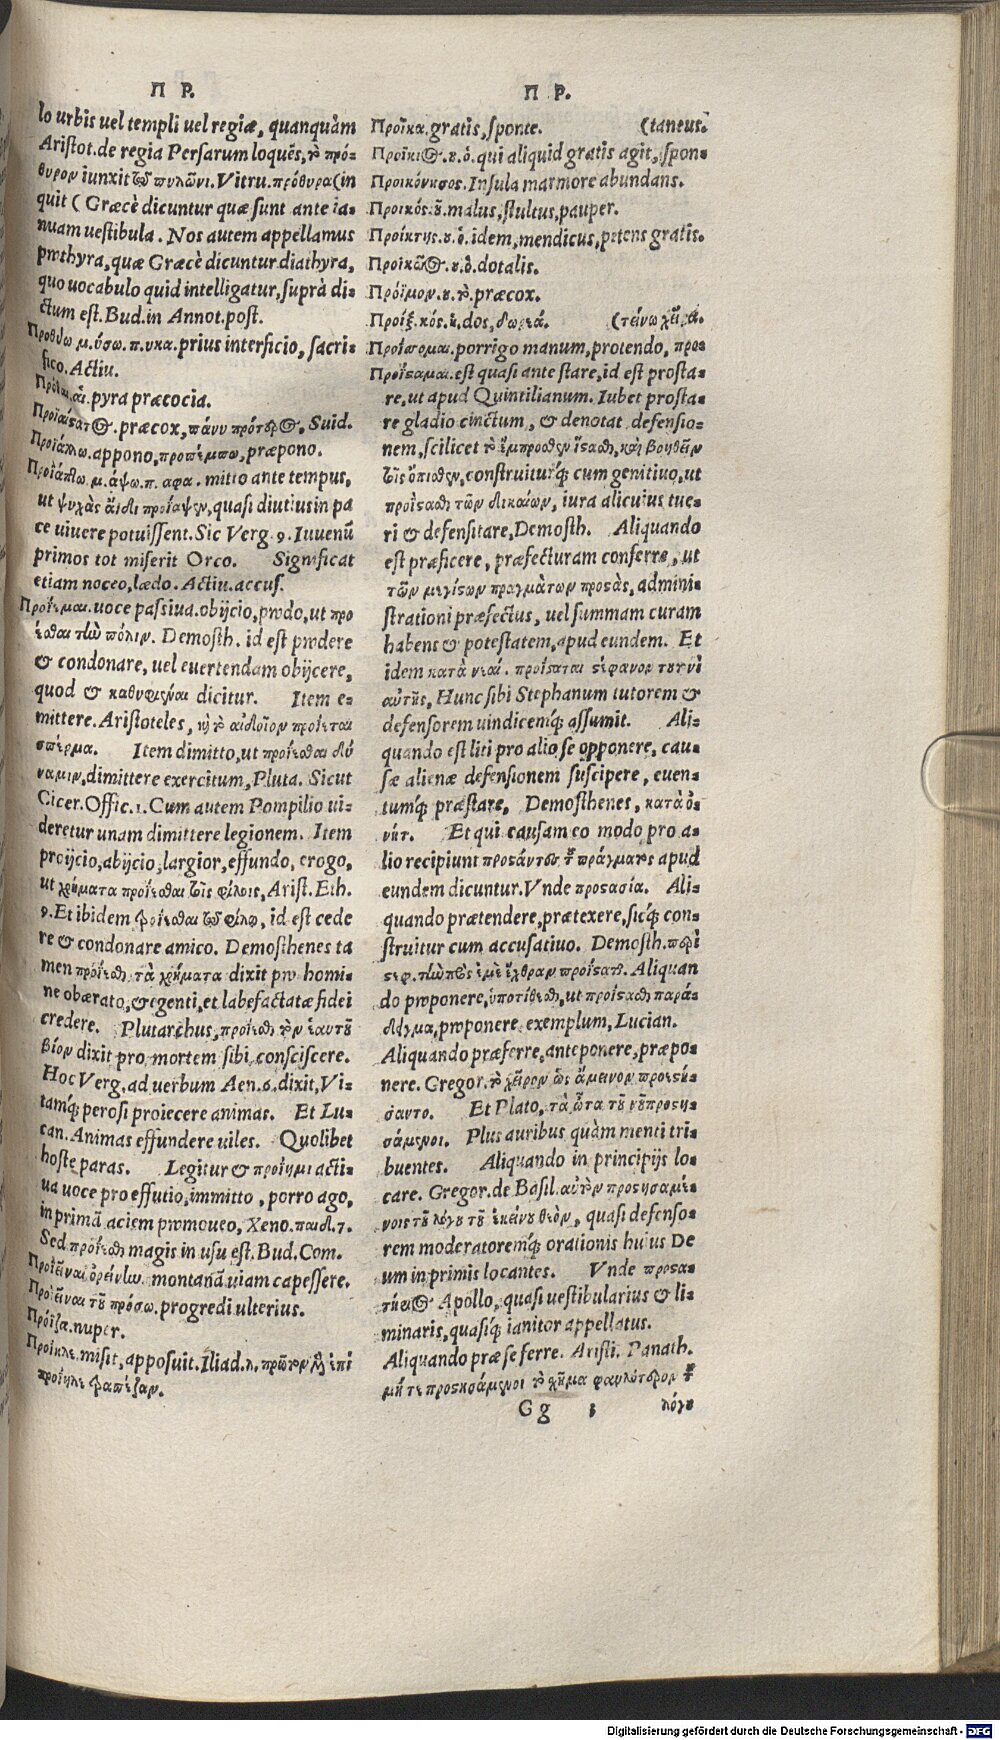 Π Ρ.
lo urbis uel templi uel regiæ, quanquàm
Aristot. de regia Persarum loquēs, τὸ πρό-
θυρον iunxit τῷ πυλῶνι. Vitru. πρόθυρα (in
quit ( Græcè dicuntur quæ sunt ante ia-
nuam uestibula. Nos autem appellamus
prothyra, quæ Græcè dicuntur diathyra,
quo uocabulo quid intelligatur, suprà di-
ctum est. Bud. in Annot. post.
Προθύω μ. ύσω. π. υκα. prius interficio, sacri-
fico. Actiu.
pyra præcocia.
præcox, πάνυ πρότερος. Suid.
Προϊάλλω. appono, προπέμπω, præpono.
Προϊάπτω. μ. άψω. π. αφα. mitto ante tempus,
ut ψυχὰς ἄϊδι προΐαψεν, quasi diutius in pa
ce uiuere potuissent. Sic Verg. 9. Iuuenū
primos tot miserit Orco. Significat
etiam noceo, lædo. Actiu. accus.
Προΐεμαι. uoce passiua. obijcio, prodo, ut προ
ΐεσθαι τὴν πόλιν. Demosth. id est prodere
& condonare, uel euertendam obijcere,
quod & καθυφιέναι dicitur. Item e-
mittere. Aristoteles, τὸ αἰδοῖον προΐεται
σπέρμα. Item dimitto, ut προΐεσθαι δύ
ναμιν, dimittere exercitum, Pluta. Sicut
Cicer. Offic. 1. Cum autem Pompilio ui-
deretur unam dimittere legionem. Item
proijcio, abijcio, largior, effundo, erogo,
ut χρήματα προΐεσθαι τοῖς φίλοις, Arist. Eth.
9. Et ibidem προΐεσθαι τῷ φίλῳ, id est cede
re & condonare amico. Demosthenes ta
men προΐεσθαι τὰ χρήματα dixit pro homi-
ne obærato, & egenti, et labefactatæ fidei
credere. Plutarchus, προΐεσθαι τὸν ἑαυτοῦ
βίον dixit pro, mortem sibi consciscere.
Hoc Verg. ad uerbum Aen. 6. dixit, Vi-
tamq́; perosi proiecere animas. Et Lu-
can. Animas effundere uiles. Quolibet
hoste paras. Legitur & προΐημι acti-
ua uoce pro effutio, immitto, porro ago,
in primā aciem promoueo, Xeno. παιδ. 7.
Sed προΐεσθαι magis in usu est. Bud. Com.
Προϊέναι ὀρεινὴν. montanā uiam capessere.
Προϊέναι τοῦ πρόσω. progredi ulterius.
Πρόϊζα. nuper.
Προΐηλε. misit, apposuit. Iliad. λ. πρῶτον μὲν ἐπὶ
προΐηλε τράπεζαν.
Π Ρ.
Προῖκα. gratis, sponte. (taneus.
Προίκιος. ου. ὁ. qui aliquid gratis agit, spon-
Προικόνησος. Insula marmore abundans.
Προικός. οῦ. malus, stultus, pauper.
Προίκτης. ου. ὁ. idem, mendicus, petens gratis.
Προικῷος. ου. ὁ. dotalis.
Πρόϊμον. ου. τὸ. præcox.
Προίξ. κός. ἡ. dos, δωρεά. (τείνω χεῖρα.
Προΐσσομαι. porrigo manum, protendo, προ-
Προΐσταμαι. est quasi ante stare, id est prosta-
re, ut apud Quintilianum. Iubet prosta-
re gladio cinctum, & denotat defensio-
nem, scilicet τὸ ἔμπροσθεν ἵστασθαι, καὶ βοηθεῖν
τοῖς ὄπισθεν, construiturq́; cum genitiuo, ut
προΐστασθαι τῶν δικαίων, iura alicuius tue-
ri & defensitare, Demosth. Aliquando
est præficere, præfecturam conferre, ut
τῶν μεγίστων πραγμάτων προστὰς, admini-
strationi præfectus, uel summam curam
habens & potestatem, apud eundem. Et
idem κατὰ νεαί. προΐσταται στέφανον τουτονὶ
αὐτῆς, Hunc sibi Stephanum tutorem &
defensorem uindicemq́; assumit. Ali-
quando est liti pro alio se opponere, cau-
sæ alienæ defensionem suscipere, euen-
tumq́; præstare, Demosthenes, κατὰ ὀ-
νήτ. Et qui causam eo modo pro a-
lio recipiunt προστάντες τοῦ πράγματος apud
eundem dicuntur. Vnde προστασία. Ali-
quando prætendere, prætexere, sicq́; con-
struitur cum accusatiuo. Demosth. περὶ
στεφ. τὴν πρὸς ἐμὲ ἔχθραν προΐσταται. Aliquan
do proponere, ὑποτίθεσθαι, ut προΐστασθαι παρά-
δειγμα, proponere exemplum, Lucian.
Aliquando præferre, anteponere, præpo-
nere. Gregor. τὸ χεῖρον ὡς ἄμεινον προεστή-
σαντο. Et Plato, τὰ ὦτα τοῦ νοῦ προστη-
σάμενοι. Plus auribus quàm menti tri-
buentes. Aliquando in principijs lo-
care. Gregor. de Basil. αὐτὸν προστησαμέ-
νοις τοῦ λόγου τοῦ ἐκείνου θεὸν, quasi defenso-
rem moderatoremq́; orationis huius De
um in primis locantes. Vnde προστα-
τήριος Apollo, quasi uestibularius & li-
minaris, quasiq́; ianitor appellatus.
Aliquando præ se ferre. Aristi. Panath.
μήτε προστησάμενοι τὸ χῆμα φαυλότερον τοῦ
Gg 1 λόγου
Digitalisierung gefördert durch die Deutsche Forschungsgemeinschaft - DFG